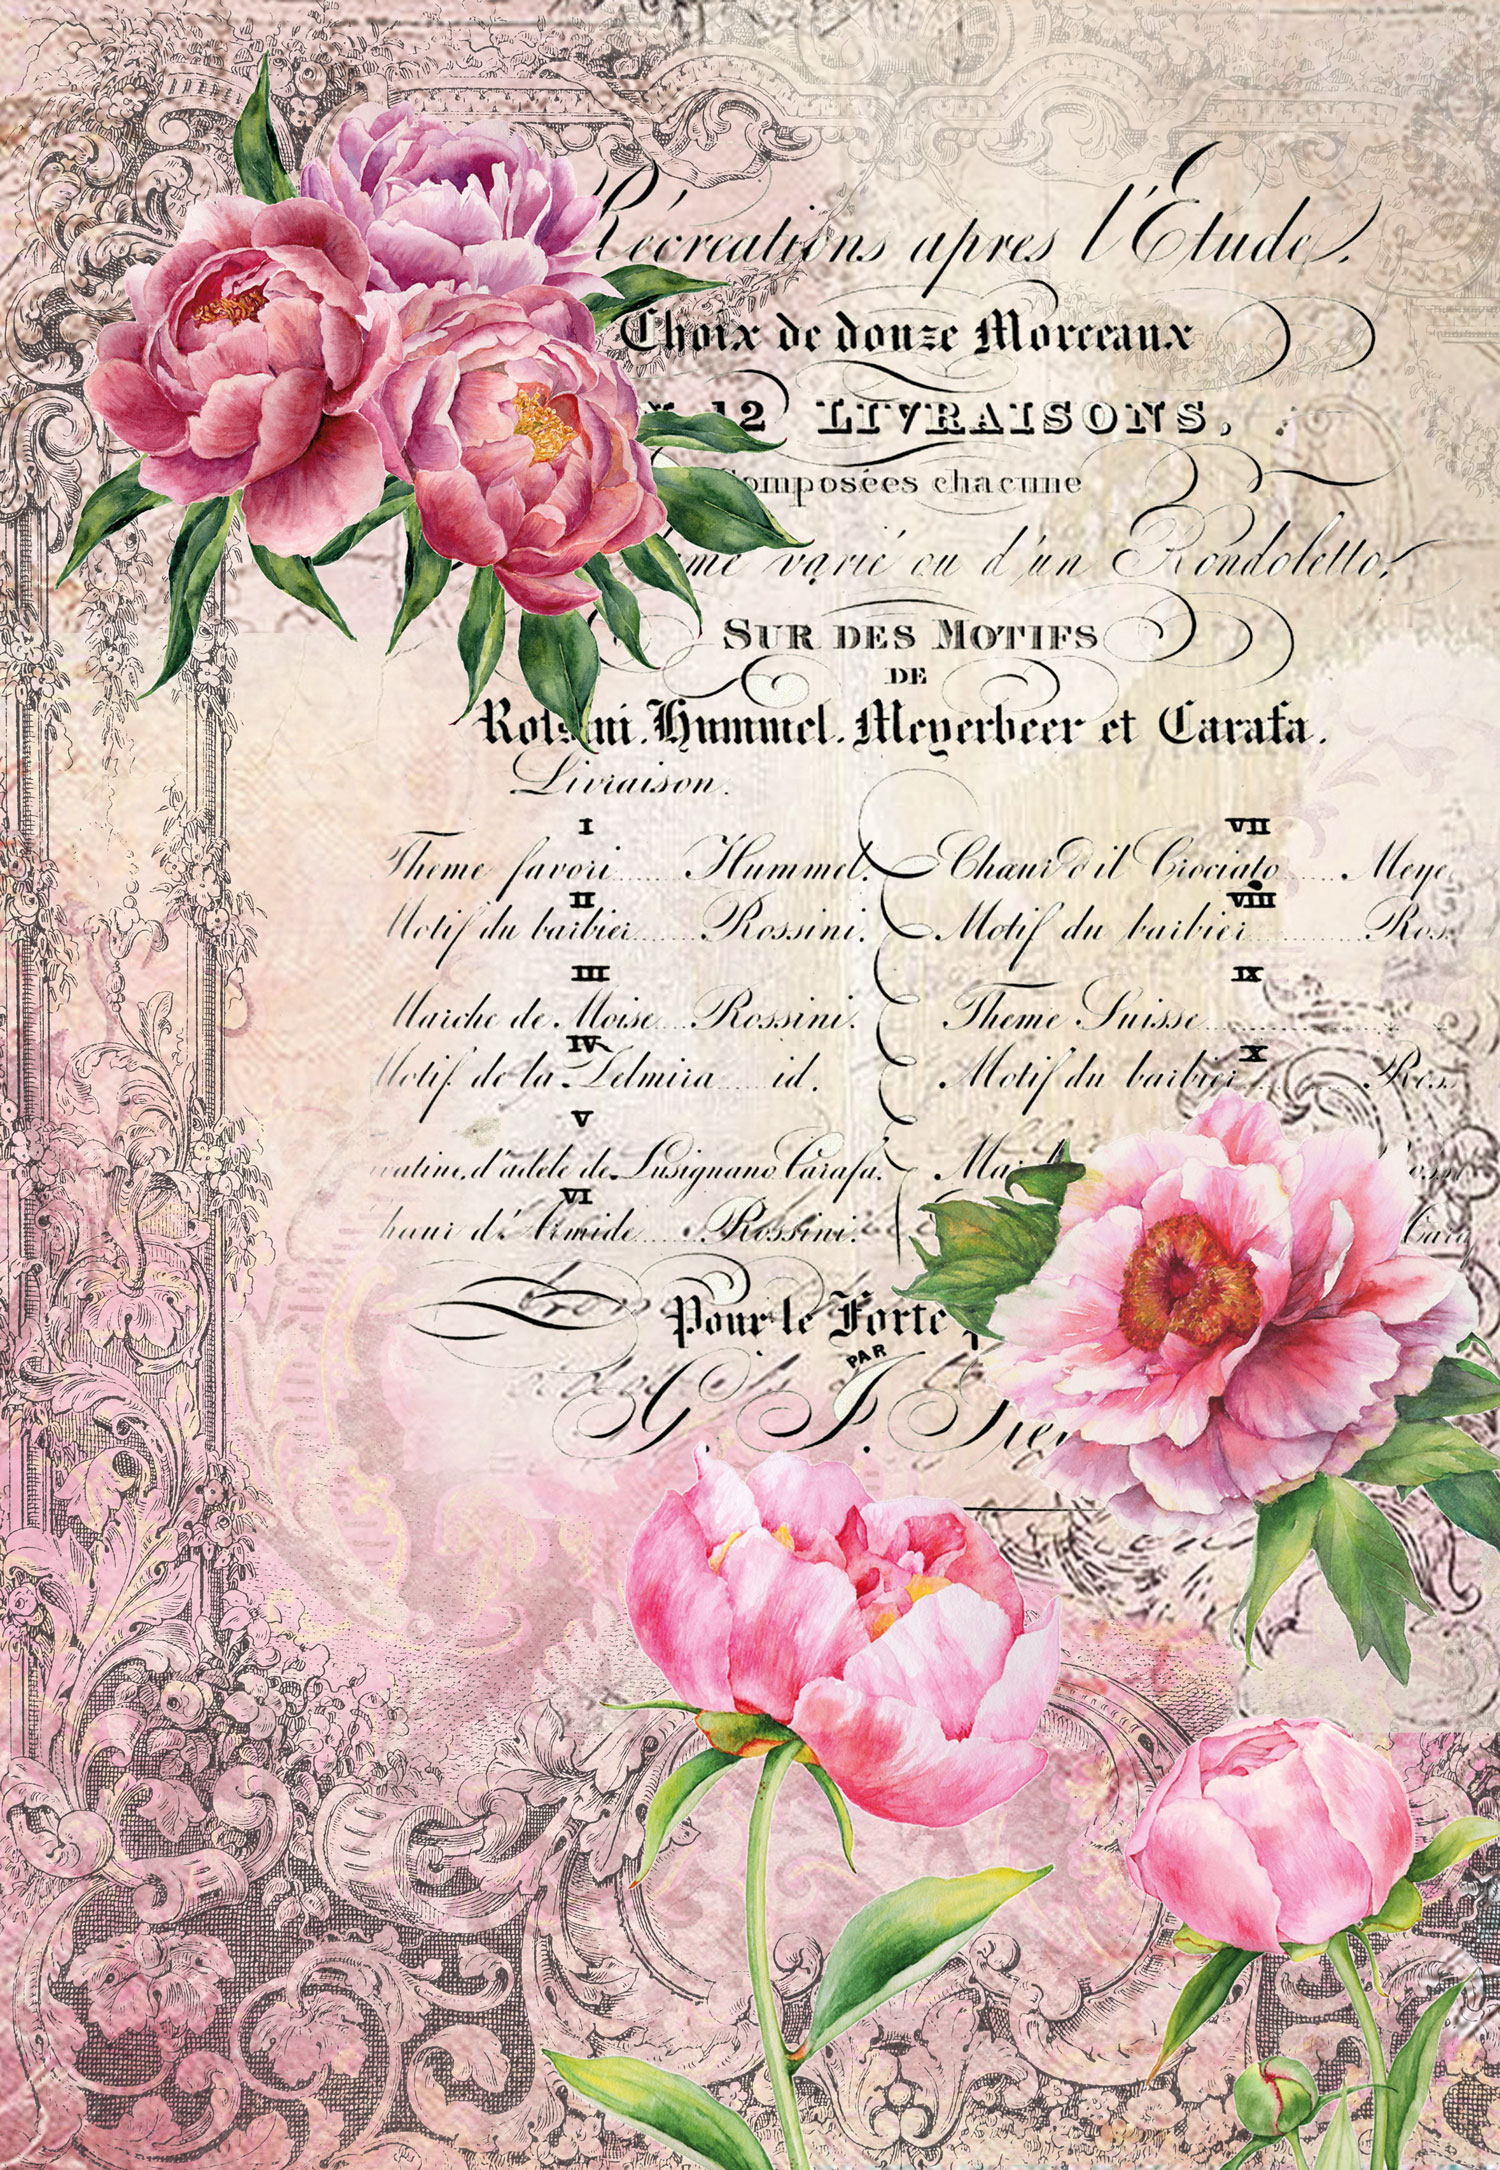 Récreations apres l'Etude,
Choix de douze Morceaux
12 LIVRAISONS,
omposées chacune
me varié ou d'un Rondoletto,
SUR DES MOTIFS
DE
Rossini, Hummel, Meyerbeer et Carafa.
Livraison.
I VII
Theme favori Hummel. Chœur d'il Crociato Meye
II VIII
Motif du barbier Rossini. Motif du barbier Ros
III IX
Marche de Moise Rossini. Theme Suisse
IV X
Motif de la Zelmira id. Motif du barbier Ros
V
atine d'adele de Lusignano Carafa. Ma
VI
hœur d'Armide Rossini. Cara
Pour le Forte
PAR
G. J.